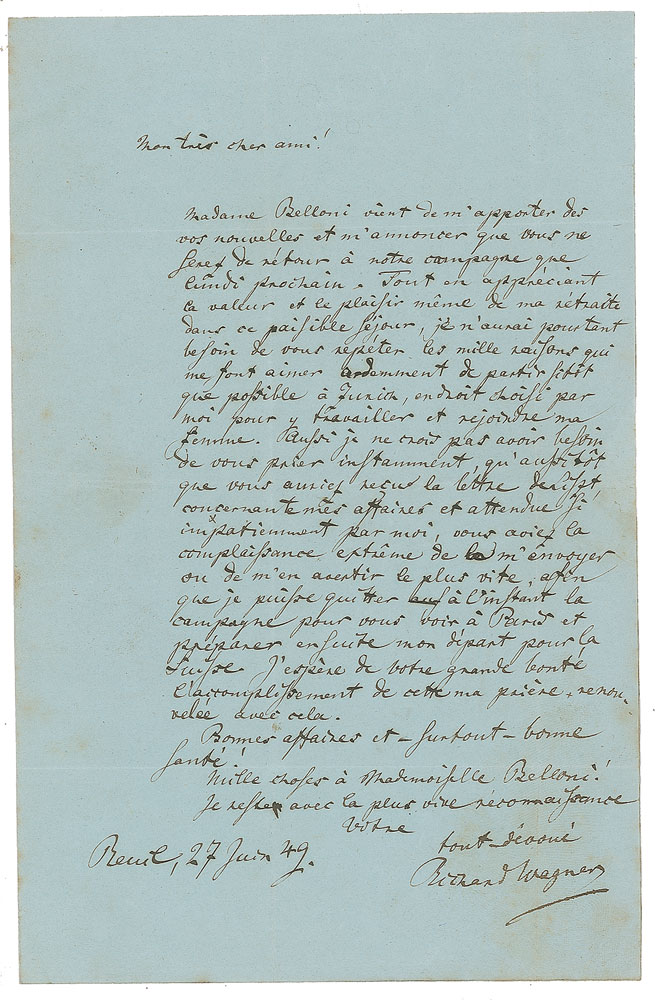 Mon très cher ami!
Madame Belloni vient de m'apporter des
vos nouvelles et m'annoncer que vous ne
serez de rétour à notre campagne que
lundi prochain. Tout en appréciant
la valeur et le plaisir même de ma rétraite
dans ce paisible séjour, je n'aurai pourtant
besoin de vous repéter les mille raisons qui
me font aimer ardemment de partir sitôt
que possible à Zurich, endroit choisi par
moi pour y travailler et rejoindre ma
femme. Aussi je ne crois pas avoir besoin
de vous prier instamment, qu'aussitôt
que vous auriez reçu la lettre de Liszt,
concernante mes affaires et attendue si
impatiemment par moi, vous aviez la
complaissance extrême de m'envoyer
ou de m'en avertir le plus vite, afin
que je puisse quitter à l'instant la
campagne pour vous voir à Paris et
préparer ensuite mon départ pour la
Suisse. J'espère de votre grande bonté
l'accomplissement de cette ma prière, renou-
velée avec cela.
Bonnes affaires et – surtout – bonne
santé!
Mille choses à Mademoiselle Belloni!
Je reste avec la plus vive réconnaissance
Votre
tout-dévoué
Richard Wagner
Reuil, 27 Juin 49.